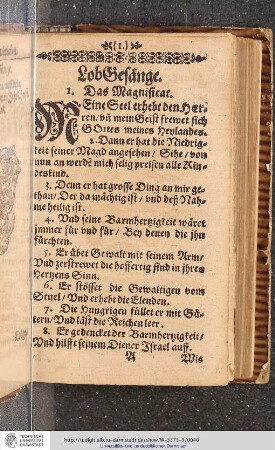 (1.)
LobGesänge.
1. Das Magnificat.
MEine Seel erhebt den HEr-
ren/ vñ mein Geist frewet sich
GOttes meines Heylandes.
2. Dann er hat die Niedrig-
keit seiner Magd angesehen/ Sihe/ von
nun an werdē mich selig preisen alle Kin-
deskind.
3. Denn er hat grosse Ding an mir ge-
than/ Der da mächtig ist/ und deß Nah-
me heilig ist.
4. Und seine Barmhertzigkeit wäret
immer für und für/ Bey denen die jhn
fürchten.
5. Er übet Gewalt mit seinem Arm/
Und zerstrewet die hoffertig sind in jhres
Hertzens Sinn.
6. Er stösset die Gewaltigen vom
Stuel/ Und erhebt die Elenden.
7. Die Hungrigen füllet er mit Gü-
tern/ Und läst die Reichen leer.
8. Er gedencket der Barmhertzigkeit/
Und hilfft seinem Diener Israel auff.
A Wie
TECHNISCHE
UNIVERSITÄT
DARMSTADT
http://tudigit.ulb.tu-darmstadt.de/show/W-3373-5/0040
Universitäts- und Landesbibliothek Darmstadt